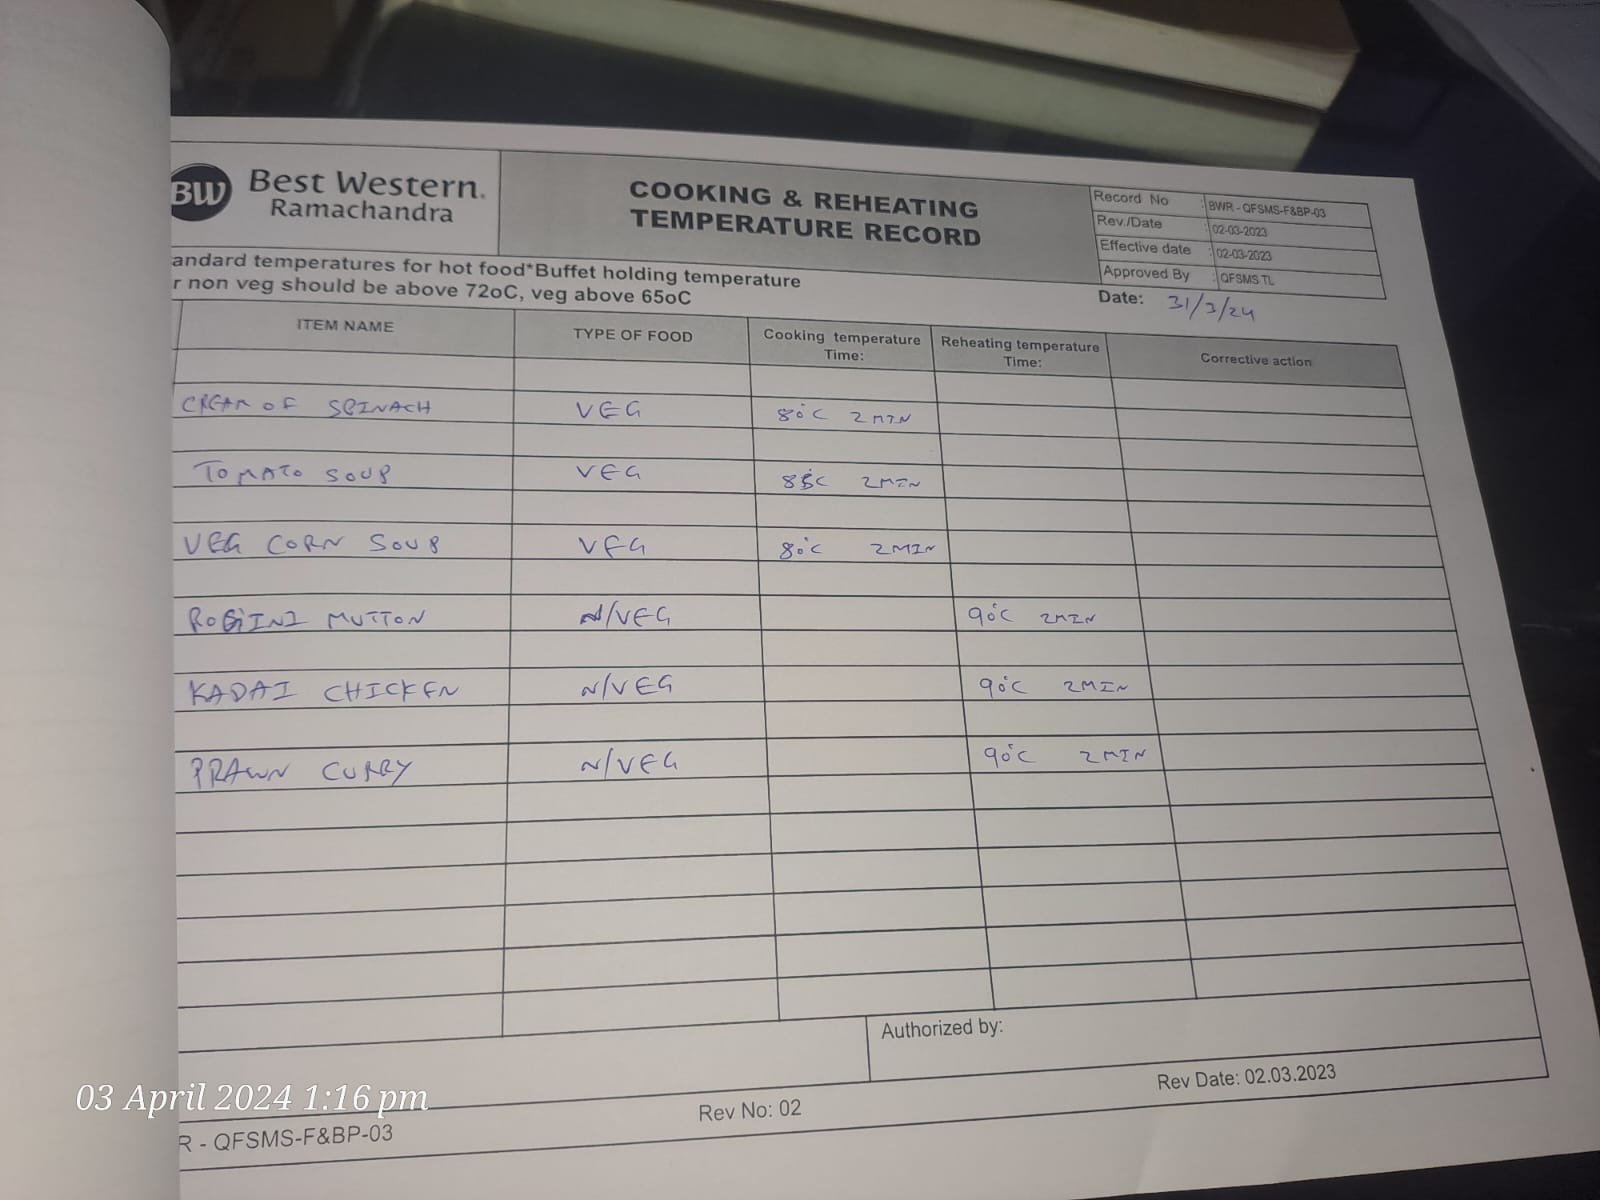 BW Best Western.
Ramachandra
COOKING & REHEATING
TEMPERATURE RECORD
Record No : BWR - QFSMS-F&BP-03
Rev./Date : 02-03-2023
Effective date : 02-03-2023
Approved By : QFSMS TL
andard temperatures for hot food*Buffet holding temperature
r non veg should be above 72oC, veg above 65oC
Date: 31/3/24
ITEM NAME TYPE OF FOOD Cooking temperature Time: Reheating temperature Time: Corrective action
CREAM OF SPINACH VEG 80°C 2 MIN
TOMATO SOUP VEG 85°C 2MIN
VEG CORN SOUP VEG 80°C 2MIN
ROGINI MUTTON N/VEG 90°C 2MIN
KADAI CHICKEN N/VEG 90°C 2MIN
PRAWN CURRY N/VEG 90°C 2MIN
Authorized by:
03 April 2024 1:16 pm
R - QFSMS-F&BP-03 Rev No: 02 Rev Date: 02.03.2023